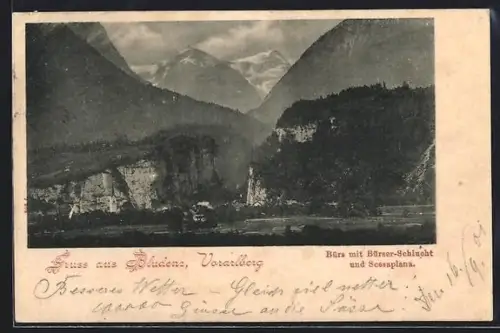 Gruss aus Bludenz, Vorarlberg
Bürs mit Bürser-Schlucht
und Scesaplana.
Besseres Wetter - Gleich viel netter.
100000 Grüsse an die